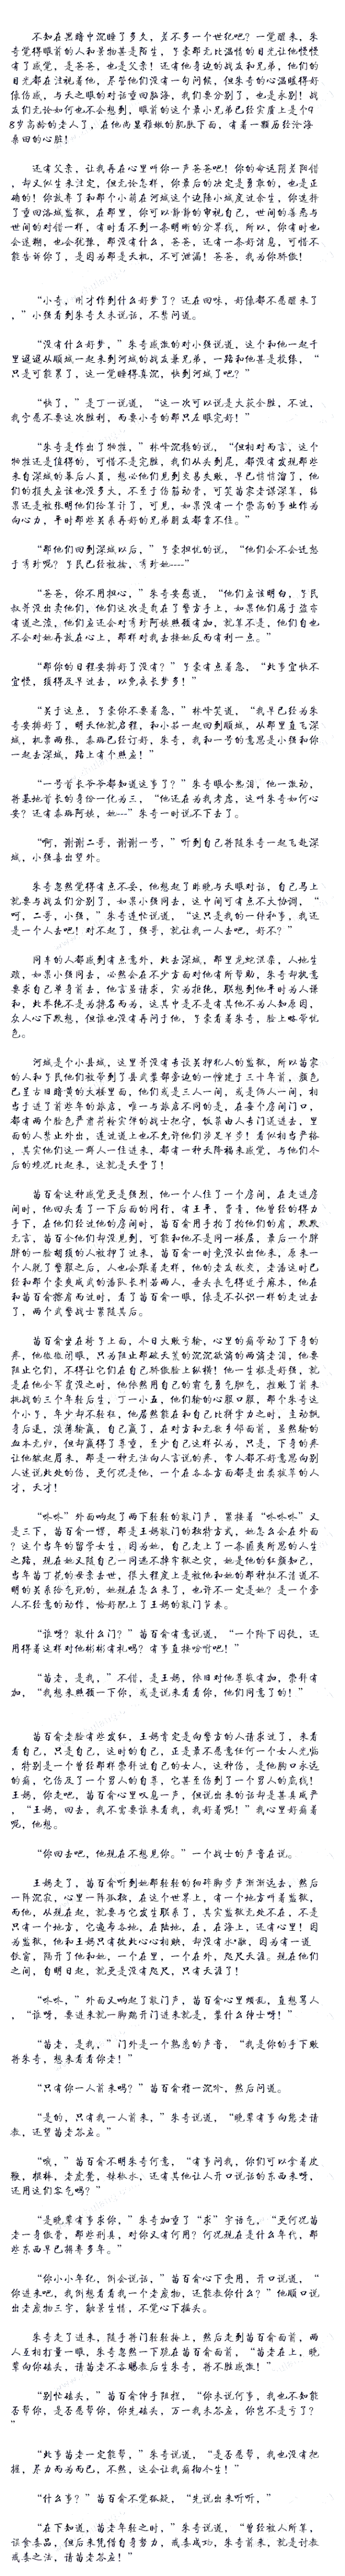 不知在黑暗中沉睡了多久，差不多一个世纪吧？一觉醒来，朱
奇觉得眼前的人和景物甚是陌生，
有了感觉，是爸爸，也是父亲！还有他身边的战友和兄弟，他们的
目光都在注视着他，尽管他们没有一句问候，但朱奇的心温暖得好
像伤感，与天之眼的对话重回脑海，我们要分别了，也是永别！战
友们无论如何也不会想到，眼前的这个景小兄弟已经实质上是个9
8岁高龄的老人了，在他尚显稚嫩的肌肤下面，有着一颗历经沧海
桑田的心脏！
还有父亲，让我再在心里听你一声爸爸吧！你的命运阴差阳错
，却又似生来注定，但无论怎样，你最后的决定是勇敢的，也是正
确的！
了重回洛城监狱，在那里，你可以静静的审视自己，世间的善恶与
世间的对错一样，有时看不到一条明晰的分界线，所以，你有时也
会迷糊，也会犹豫，那没有什么，爸爸，还有一条好消息，可惜不
能告诉你了，是因为那是天机，不可泄漏！爸爸，我为你骄傲！
“小奇，刚才作到什么好梦了？还在回味，好像都不愿醒来了
，”小强看到朱奇久未说话，不禁问道。
“没有什么好梦，”朱奇感激的对小强说道，这个和他一起千
里迢迢从顺城一起来到河城的战友兼兄弟，一路和他甚是投缘，“
只是可能累了，这一觉睡得真沉，快到河城了吧？”
“快了，”是丁一说道，“这一次可以说是大获全胜，不过，
我宁愿不要这次胜利，而要小奇的那只左眼完好！”
“朱奇是作出了牺牲，”林峰沉稳的说，“但相对而言，这个
牺牲还是值得的，可惜不是完胜，我们从头到尾，都没有发现那些
来自深城的幕后人员，想必他们见到交易失败，早已悄悄溜了，他
们的损失应该也没多大，不至于伤筋动骨，可笑苗家老谋深算，结
果还是被张明他们给算计了，可见，如果没有一个崇高的事业作为
向心力，平时那些关系再好的兄弟朋友都靠不住。”
“那他们回到深城以后，”
“爸爸，你不用担心，”朱奇安慰道，“他们应该明白，
叔并没出卖他们，他们这次是栽在了警方手上，如果他们属于盗亦
有道之流，他们应还会对秀珍阿姨照顾有加，就算不是，他们自也
不会对她再放在心上，那样对我去接她反而有利一点。”
“那你的日程安排好了没有？”
宜慢，须得及早过去，以免夜长梦多！”
“关于这点，
奇安排好了，明天他就启程，和小茹一起回到顺城，从那里直飞深
城，机票两张，泰瑞已经订好，朱奇，我和一号的意思是小强和你
一起去深城，路上有个照应！”
“一号首长爷爷都知道这事了？”朱奇眼含热泪，他一激动，
将基地首长的身份一化为三，“他还在为我考虑，这叫朱奇如何心
安？还有泰瑞阿姨，她---”朱奇一时说不下去了。
“啊，谢谢二哥，谢谢一号，”听到自己将随朱奇一起飞赴深
城，小强喜出望外。
朱奇忽然觉得有点不妥，他想起了昨晚与天眼对话，自己马上
就要与战友们分别了，如果小强同去，这中间可有点不大协调，“
呵，二哥，小强，”朱奇连忙说道，“这只是我的一件私事，我还
是一个人去吧！对不起了，强哥，就让我一人去吧，好不？”
同车的人都感到有点意外，此去深城，那里龙蛇混杂，人地生
疏，如果小强同去，必然会在不少方面对他有所帮助，朱奇却执意
要求自己单身前去，他言虽请求，实为拒绝，联想到他平时为人谦
和，此举绝不是为拂名而为，这其中是不是有其他不为人知原因，
众人心下默想，但谁也没有再问于他，
色。
河城是个小县城，这里并没有专设关押犯人的监狱，所以苗家
已呈古旧暗黄的大楼里面，他们或是三人一间，或是俩人一间，相
当于进了前些年的旅店，唯一与旅店不同的是，在每个房间门口，
都有两个脸色严肃荷枪实弹的战士把守，饭菜由人专门送进去，里
面的人禁止外出，连过道上也不允许他们涉足半步！看似相当严格
，其实他们这一群人一住进来，都有一种天降福来感觉，与他们今
后的境况比起来，这就是天堂了！
苗百翕这种感觉更是强烈，他一个人住了一个房间，在走进房
间时，他回头看了一下后面的同行，有王平，曾青，他曾经的得力
手下，在他们经过他的房间时，苗百翕用手拍了拍他们的肩，默默
无言，苗百仝他们却没见到，可能和他不是同一楼层，最后一个胖
胖的一脸胡须的人被押了过来，苗百翕一时竟没认出他来，原来一
个人脱了警服之后，人也会跟着走样，他的老友敖交，老潘这时已
经和那个豪爽威武的潘队长判若两人，垂头丧气得近乎麻木，他在
和苗百翕擦肩而过时，看了苗百翕一眼，像是不认识一样的走过去
了，两个武警战士紧随其后。
苗百翕坐在椅子上面，今日大败亏输，心里的痛带动了下身的
疼，他微微闭眼，只为阻止那破天荒的沉沉欲滴的两滴老泪，他要
阻止它们，不得让它们在自己骄傲脸上纵横！他一生极是好强，就
是在他全军覆没之时，他依然用自己的霸气勇气胆气，挫败了前来
挑战的三个年轻后生，丁一小王，他们输的心服口服，那个朱奇这
个小子，年少却不轻狂，他居然能在和自己比拼掌力之时，主动飘
身后退，淡薄输赢，自己赢了，在对方和无数乡邻面前，虽然输的
血本无归，但却赢得了尊重，至少自己这样认为，只是，下身的疼
让他皱起眉来，那是一种无法向人言说的疼，常人都不好意思向别
人述说此处的伤，更何况是他，一个在各各方面都是出类拔萃的人
才，天才！
“咚咚”外面响起了两下轻轻的敲门声，紧接着“咚咚咚”又
是三下，苗百翕一愣，那是王嫣敲门的独特方式，她怎么会在外面
？这个当年的留学女生，因为她，自己走上了一条匪夷所思的人生
之路，现在她又随自己一同逃不掉牢狱之灾，她是他的红颜知己，
当年苗丁花的母亲去世，很大程度上是被他和她的那种扯不清道不
明的关系给气死的，她现在怎么来了，也许不一定是她？是一个旁
人不经意的动作，恰好配上了王嫣的敲门节奏。
“谁呀？敲什么门？”苗百翕有意说道，“一个阶下囚徒，还
用得着这样对他彬彬有礼吗？有事直接吩咐吧！”
“苗老，是我，”不错，是王嫣，依旧对他尊敬有加，崇拜有
加，“我想来照顾一下你，或是说来看看你，他们同意了的！”
苗百翕老脸有些发红，王嫣肯定是向警方的人请求过了，来看
看自己，只是自己，这时的自己，正是最不愿意任何一个女人光临
，特别是一个曾经那样崇拜过自己的女人，这种伤，是他胸口永远
的痛，它伤及了一个男人的自尊，它甚至伤到了一个男人的底线！
王嫣，你走吧，苗百翕心里叹息一声，但说出来的话却是甚具威严
，“王嫣，回去，我不需要谁来看我，我好着呢！”我心里好痛着
呢，他想。
“你回去吧，他现在不想见你。”一个战士的声音在说。
王嫣走了，苗百翕听到她那轻轻的细碎脚步声渐渐远去，然后
一阵沉寂，心里一阵孤独，在这个世界上，有一个地方叫着监狱，
而他，从现在起，就要与它发生联系了，其实监狱无处不在，不是
只有一个地方，它遍布各地，在陆地，在，在海上，还有心里！因
为监狱，他和王嫣只有彼此心心相映，却没有水*融，因为有一道
铁窗，隔开了他和她，一个在里，一个在外，咫尺天涯。现在他们
之间，自明日起，就更是没有咫尺，只有天涯了！
“咚咚，”外面又响起了敲门声，苗百翕心里烦乱，直想骂人
，“谁呀，要进来就一脚踹开门进来就是，装什么绅士呀！”
“苗老，是我，”门外是一个熟悉的声音，“我是你的手下败
将朱奇，想来看看你老！”
“只有你一人前来吗？”苗百翕稍一沉吟，然后问道。
“是的，只有我一人前来，”朱奇说道，“晚辈有事向您老请
教，还望苗老答应。”
“哦，”苗百翕不明朱奇何意，“有事问我，你们可以拿着皮
鞭，棍棒，老虎凳，辣椒水，还有其他让人开口说话的东西来呀，
还用这们客气吗？”
“是晚辈有事求你，”朱奇加重了“求”字语气，“更何况苗
老一身傲骨，那些刑具，对你又有何用？何况现在是什么年代，那
些东西早已摒弃多年。”
“你小小年纪，倒会说话，”苗百翕心下受用，开口说道，“
你进来吧，我倒想看看我一个老废物，还能教你什么？”他顺口说
出老废物三字，触景生情，不觉心下摇头。
朱奇走了进来，随手将门轻轻掩上，然后走到苗百翕面前，两
人互相打量一眼，朱奇忽然一下跪在苗百翕面前，“苗老在上，晚
辈向你磕头，请苗老不吝赐教后生朱奇，将不胜感激！”
“别忙磕头，”苗百翕伸手阻拦，“你未说何事，我也不知能
否帮你，是否愿帮你，你先磕头，万一我未答应，你岂不是亏了？
”
“此事苗老一定能帮，”朱奇说道，“是否愿帮，我也没有把
握，尽力而为而已，不然，这会让我痛拘今生！”
“什么事？”苗百翕不觉狐疑，“先说出来听听，”
“在下知道，苗老年轻之时，”朱奇说道，“曾经被人所算，
误食毒品，但后来凭借自身努力，戒毒成功，朱奇前来，就是讨教
戒毒之法，请苗老答应！”